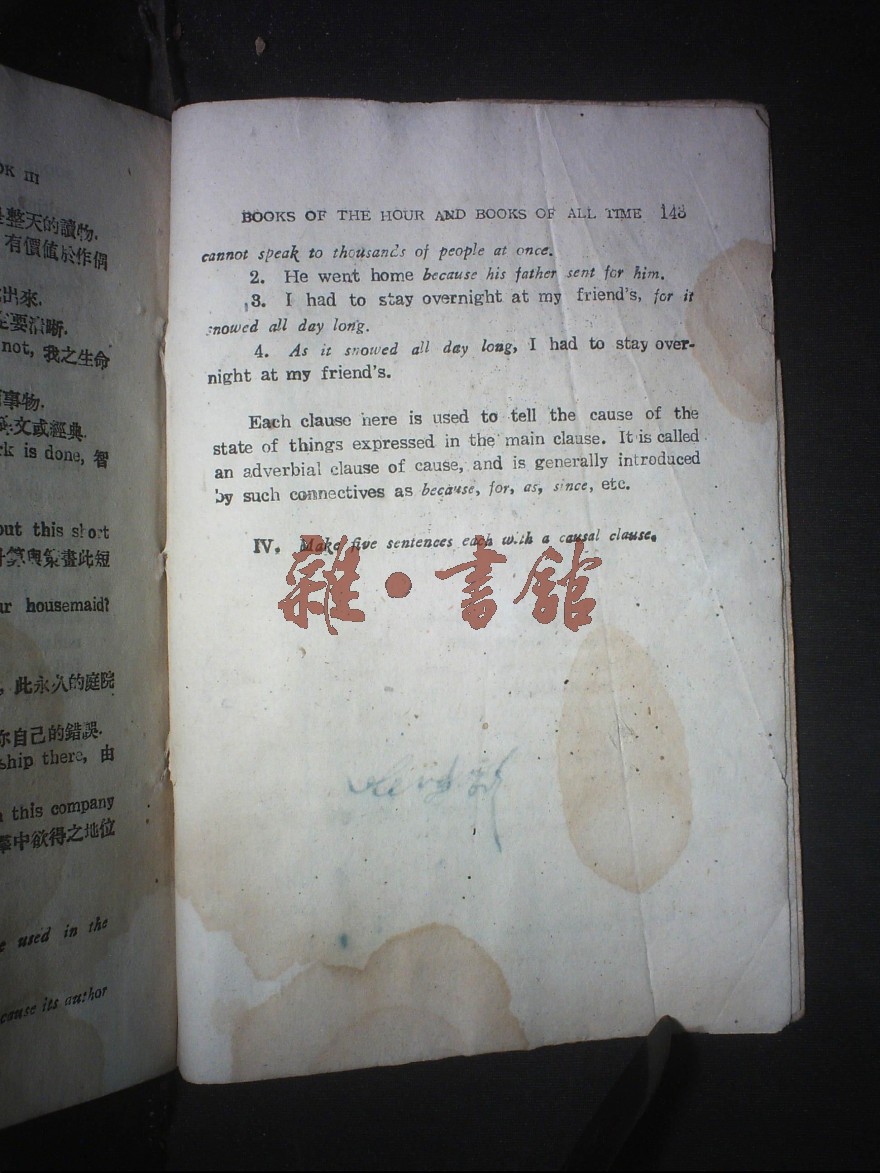 OK III
整天的讀物.
有價值於作偶
出來.
要清晰.
not, 我之生命
事物.
文或經典.
rk is done, 智
out this short
畫此短
ur housemaid?
, 此永久的庭院
你自己的錯誤.
ship there, 由
n this company
羣中欲得之地位
e used in the
cause its author
BOOKS OF THE HOUR AND BOOKS OF ALL TIME 143
cannot speak to thousands of people at once.
2. He went home because his father sent for him.
3. I had to stay overnight at my friend's, for it
snowed all day long.
4. As it snowed all day long, I had to stay over-
night at my friend's.
Each clause here is used to tell the cause of the
state of things expressed in the main clause. It is called
an adverbial clause of cause, and is generally introduced
by such connectives as because, for, as, since, etc.
IV. Make five sentences each with a causal clause.
雜·書館